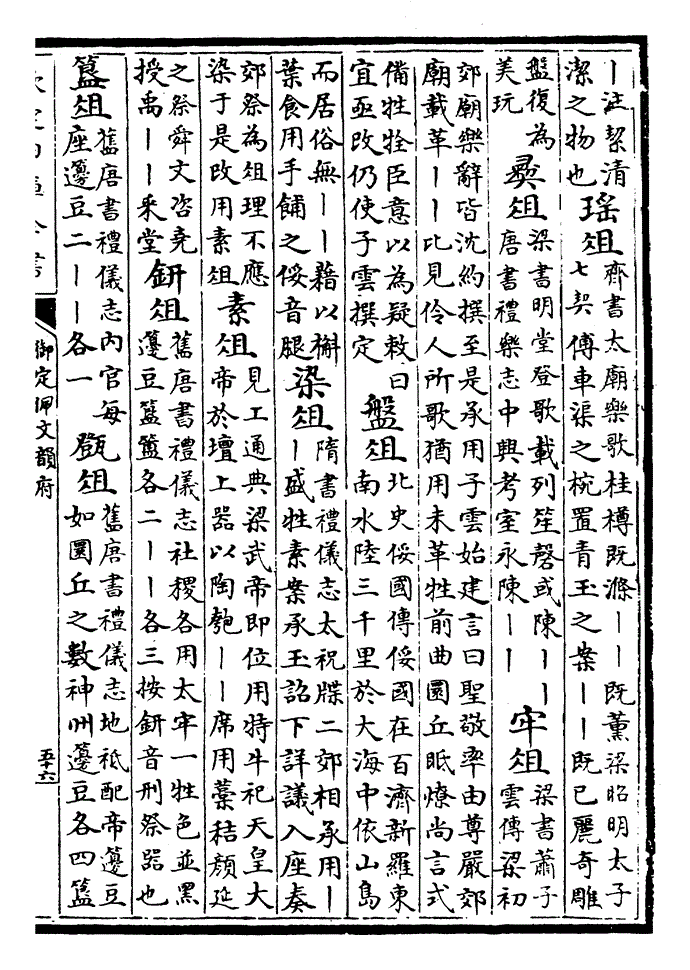 丨注絜清
潔之物也
瑤俎
齊書太廟樂歌桂樽既滌丨丨既薰梁昭明太子
七契傅車渠之椀置青玉之案丨丨既已麗奇雕
盤復為
美玩
彞俎
梁書明堂登歌載列笙磬或陳丨丨
唐書禮樂志中興考室永陳丨丨
牢俎
梁書蕭子
雲傳梁初
郊廟樂辭皆沈約撰至是承用子雲始建言曰聖敬率由尊嚴郊
廟載革丨丨比見伶人所歌猶用未革牲前曲圜丘眡燎尚言式
備牲牷臣意以為疑敕曰
宜亟改仍使子雲撰定
盤俎
北史倭國傳倭國在百濟新羅東
南水陸三千里於大海中依山島
而居俗無丨丨藉以槲
葉食用手餔之倭音腿
染俎
隋書禮儀志太祝牒二郊相承用丨
丨盛牲素案承玉詔下詳議入座奏
郊祭為俎理不應
染于是改用素俎
素俎
見工通典梁武帝即位用特牛祀天皇大
帝於壇上器以陶匏丨丨席用藁秸顔延
之祭舜文咨堯
授禹丨丨釆堂
鈃俎
舊唐書禮儀志社稷各用太牢一牲色並黒
籩豆簋簠各二丨丨各三按鈃音刑祭器也
簋俎
舊唐書禮儀志内官每
座籩豆二丨丨各一
㽅俎
舊唐書禮儀志地祗配帝籩豆
如圜丘之數神州籩豆各四簋
御定佩文韻府
五十六